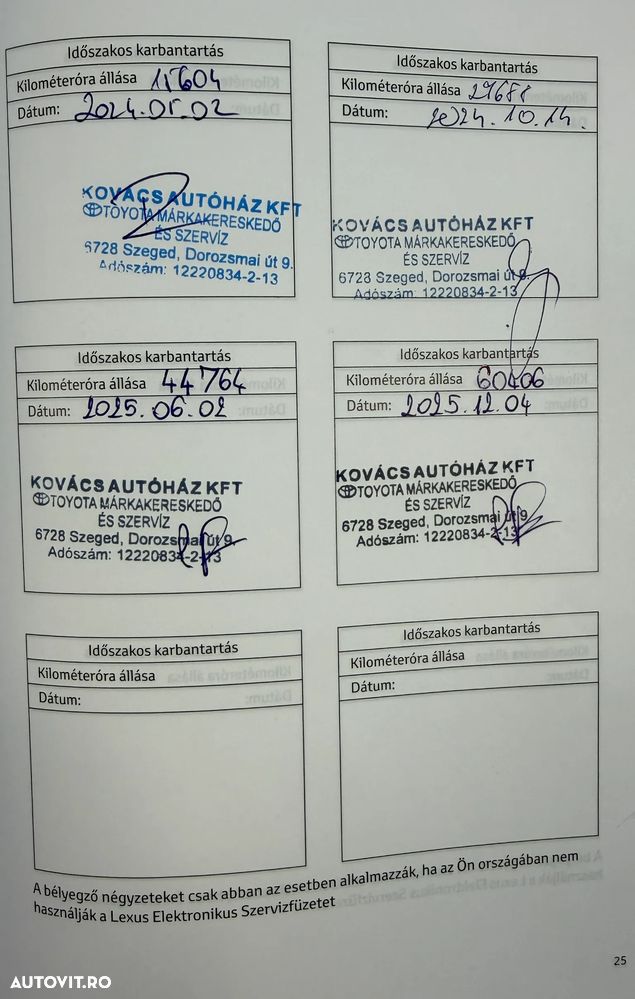 Időszakos karbantartás
Kilométeróra állása 15604
Dátum: 2024.05.02
KOVÁCS AUTÓHÁZ KFT
TOYOTA MÁRKAKERESKEDŐ
ÉS SZERVÍZ
6728 Szeged, Dorozsmai út 9.
Adószám: 12220834-2-13
Időszakos karbantartás
Kilométeróra állása 29688
Dátum: 2024.10.14.
KOVÁCS AUTÓHÁZ KFT
TOYOTA MÁRKAKERESKEDŐ
ÉS SZERVÍZ
6728 Szeged, Dorozsmai út 9.
Adószám: 12220834-2-13
Időszakos karbantartás
Kilométeróra állása 44764
Dátum: 2025.06.02
KOVÁCS AUTÓHÁZ KFT
TOYOTA MÁRKAKERESKEDŐ
ÉS SZERVÍZ
6728 Szeged, Dorozsmai út 9.
Adószám: 12220834-2-13
Időszakos karbantartás
Kilométeróra állása 60406
Dátum: 2025.12.04
KOVÁCS AUTÓHÁZ KFT
TOYOTA MÁRKAKERESKEDŐ
ÉS SZERVÍZ
6728 Szeged, Dorozsmai út 9.
Adószám: 12220834-2-13
Időszakos karbantartás
Kilométeróra állása
Dátum:
Időszakos karbantartás
Kilométeróra állása
Dátum:
A bélyegző négyzeteket csak abban az esetben alkalmazzák, ha az Ön országában nem
használják a Lexus Elektronikus Szervizfüzetet
25
AUTOVIT.RO